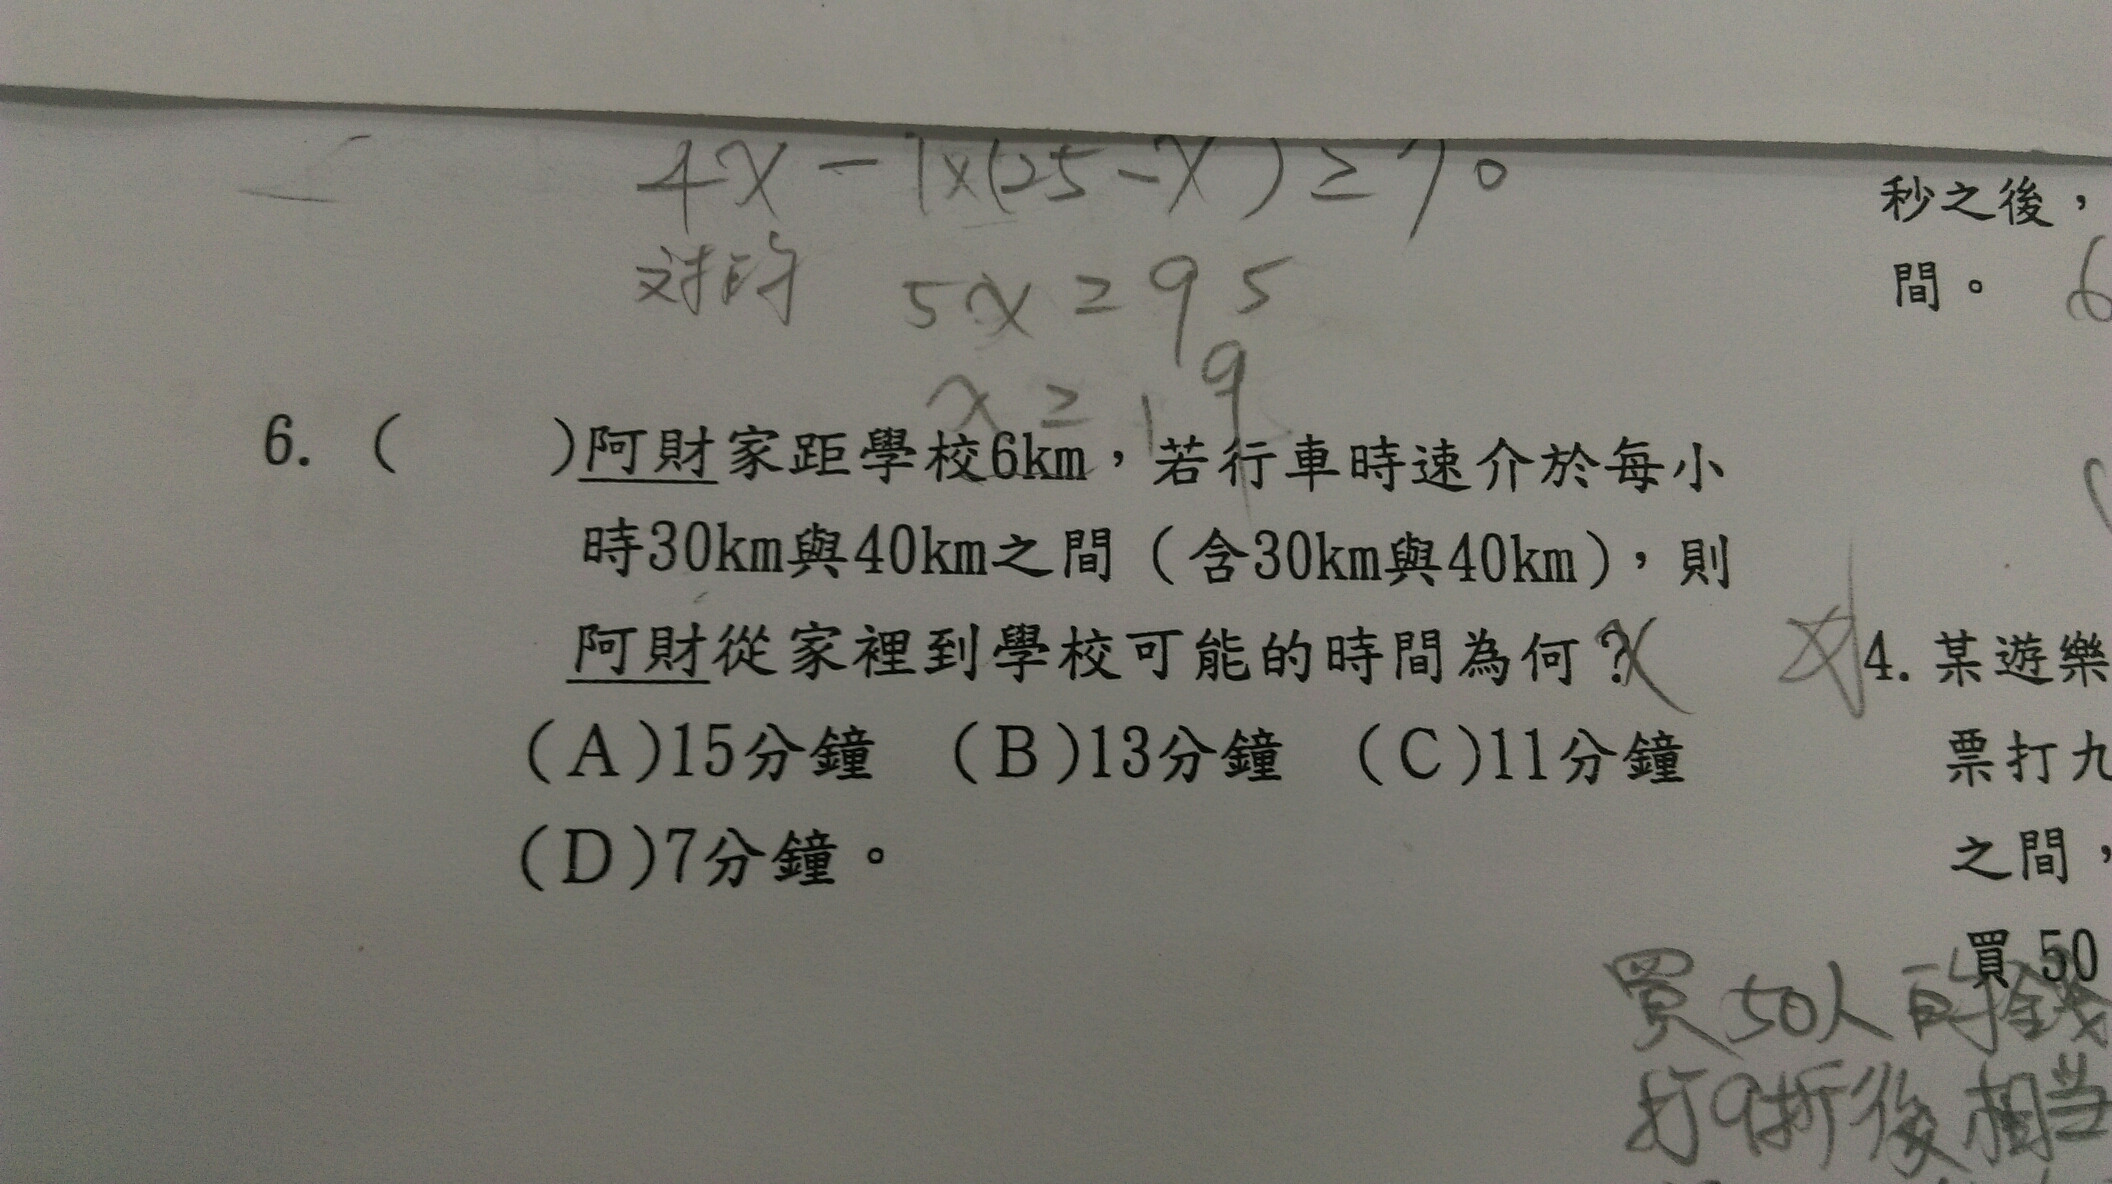 4X-1x(25-X)≥70
5x≥95
x≥19
6. (　　)阿財家距學校6km，若行車時速介於每小
時30km與40km之間（含30km與40km），則
阿財從家裡到學校可能的時間為何？
(A)15分鐘 (B)13分鐘 (C)11分鐘
(D)7分鐘。
秒之後，
間。 6
4. 某遊樂
票打九
之間，
買 50
買50人 錢
打9折後相当